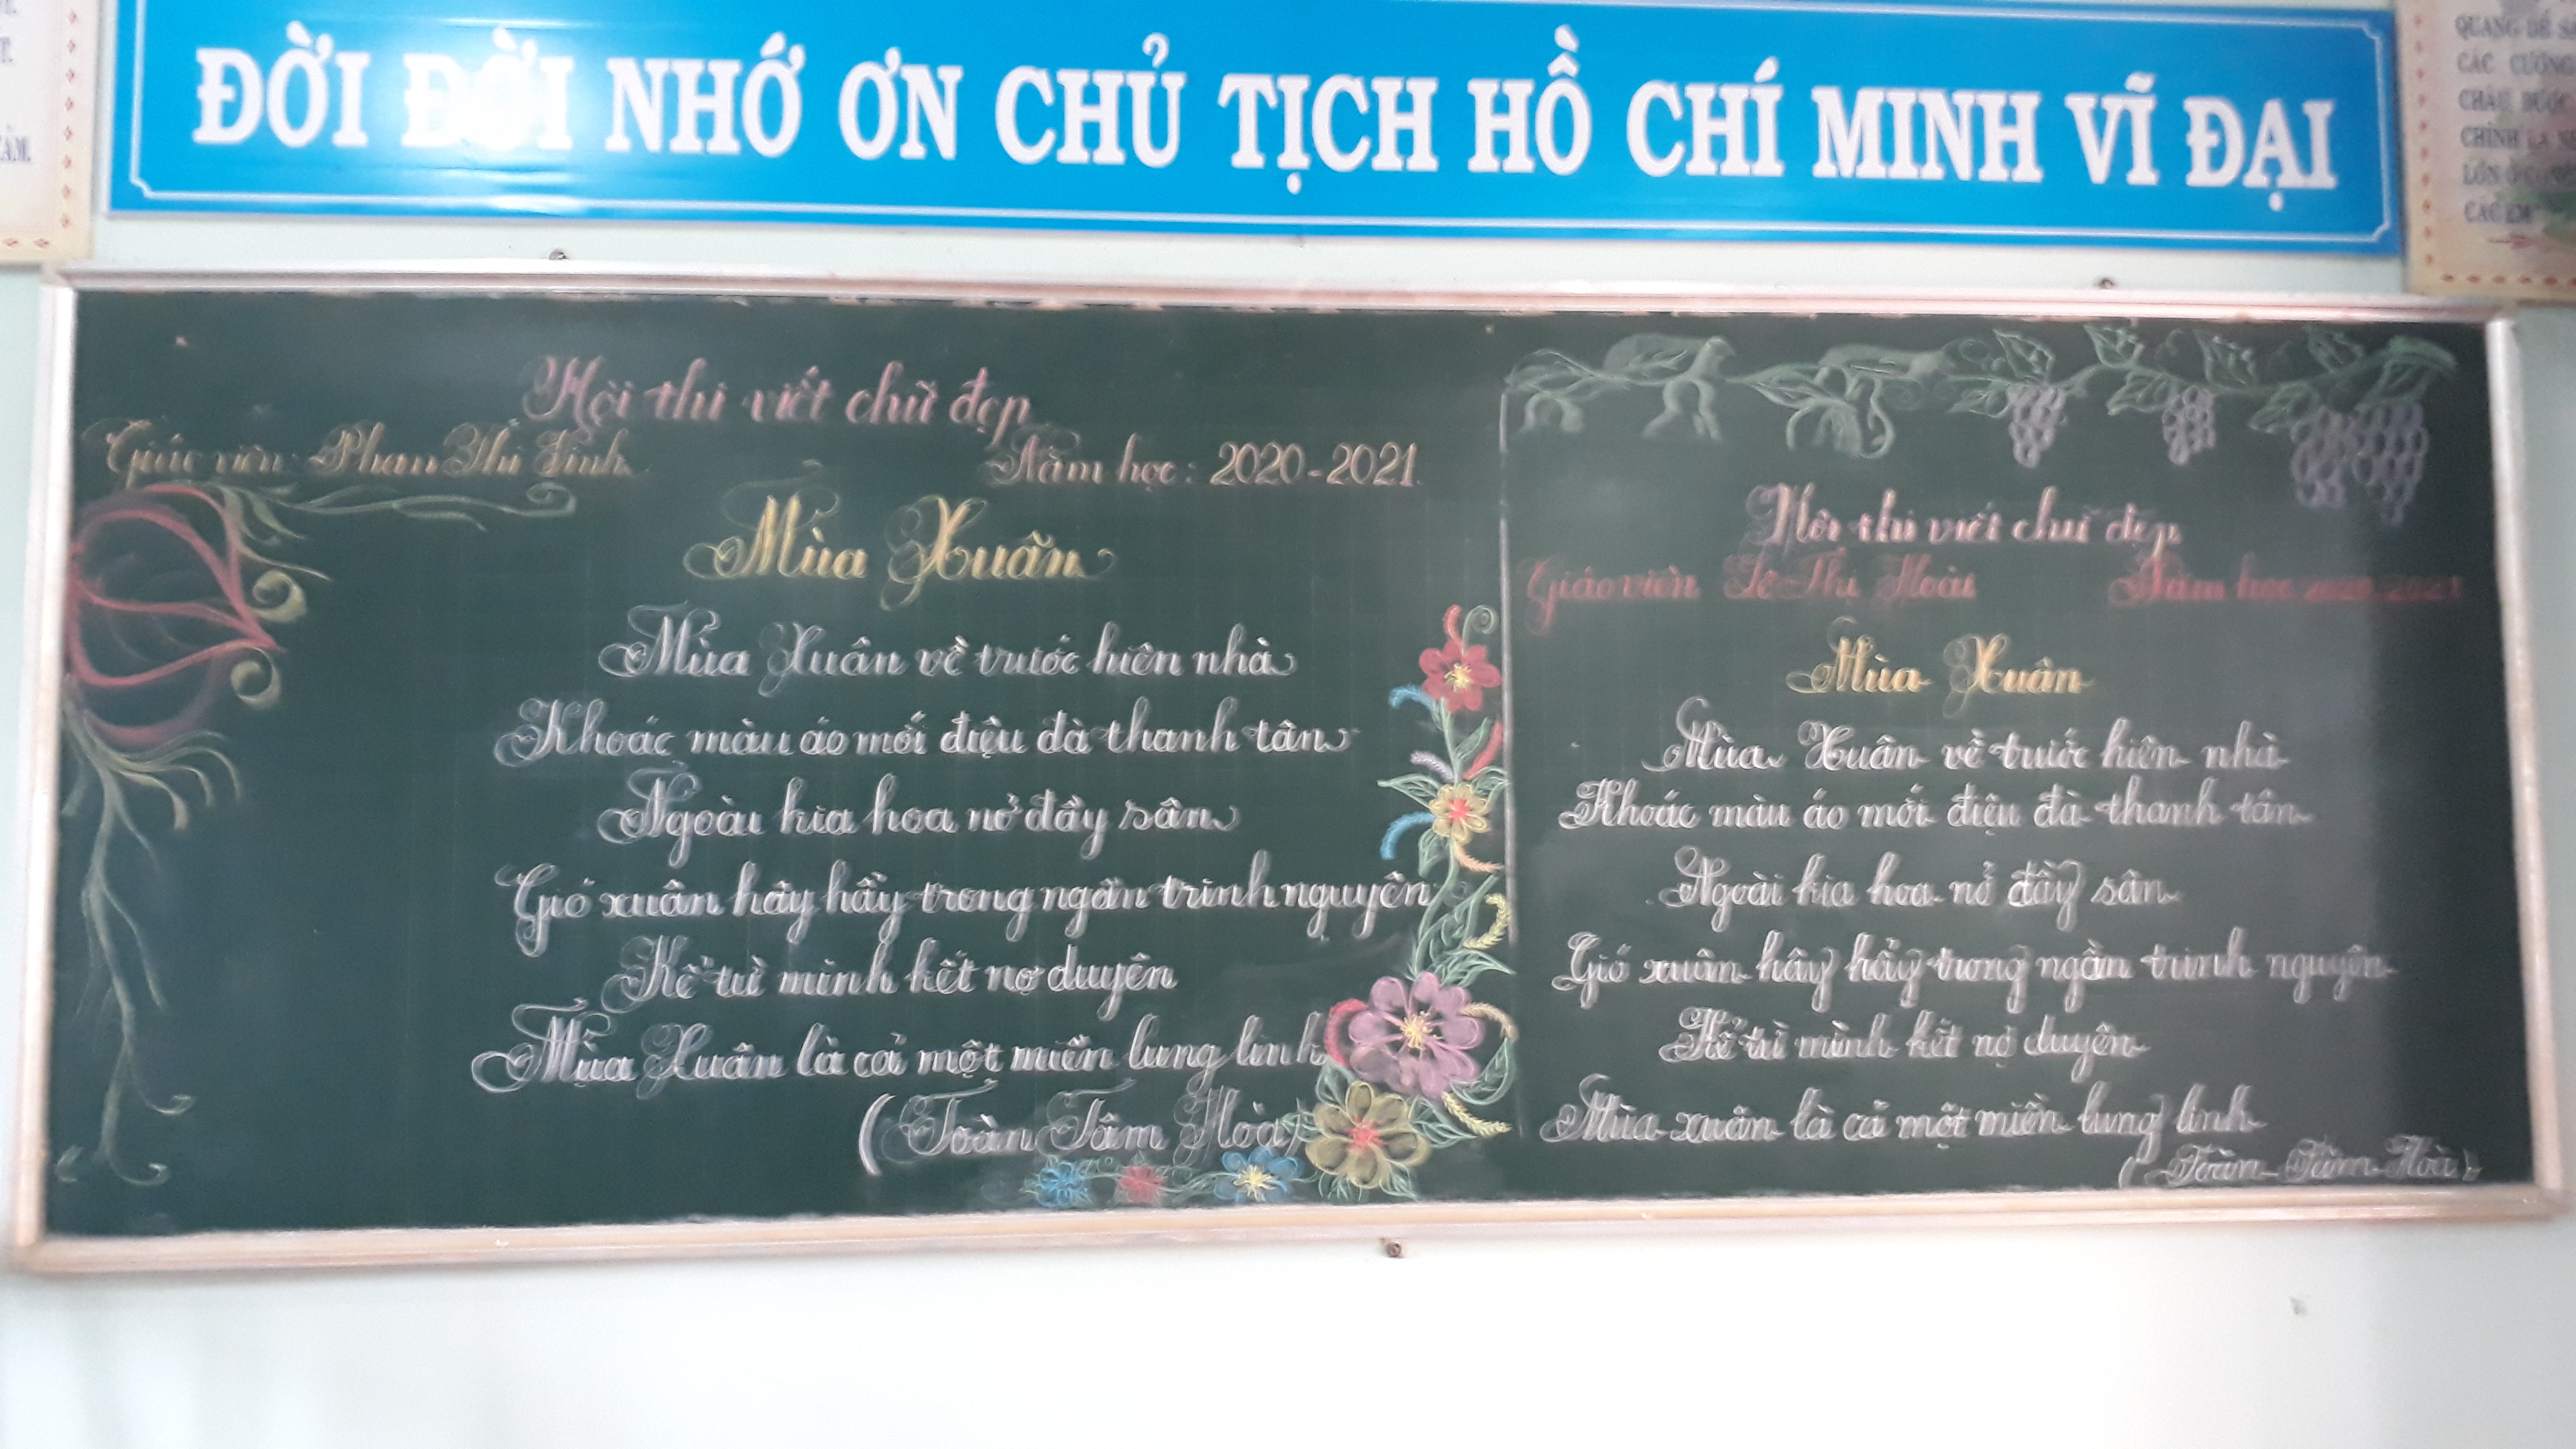 ĐỜI ĐỜI NHỚ ƠN CHỦ TỊCH HỒ CHÍ MINH VĨ ĐẠI
QUANG ĐỂ S
CÁC CƯỜNG
CHÁU ĐƯỢC
CHÍNH LÀ N
LỚN Ở C
CÁC EM
Hội thi viết chữ đẹp
Giáo viên: Phan Thị
Năm học: 2020-2021.
Mùa Xuân
Mùa Xuân về trước hiên nhà
Khoác màu áo mới điệu đà thanh tân
Ngoài kia hoa nở đầy sân
Gió xuân hây hẩy trong ngần trinh nguyên
Kể từ mình kết nợ duyên
Mùa Xuân là cả một miền lung linh
(Toàn Tâm Hòa)
Hội thi viết chữ đẹp
Giáo viên Lê Thị Hoài
Năm học 2020-2021
Mùa Xuân
Mùa Xuân về trước hiên nhà
Khoác màu áo mới điệu đà thanh tân
Ngoài kia hoa nở đầy sân
Gió xuân hây hẩy trong ngần trinh nguyên
Kể từ mình kết nợ duyên
Mùa xuân là cả một miền lung linh
(Toàn Tâm Hoà)